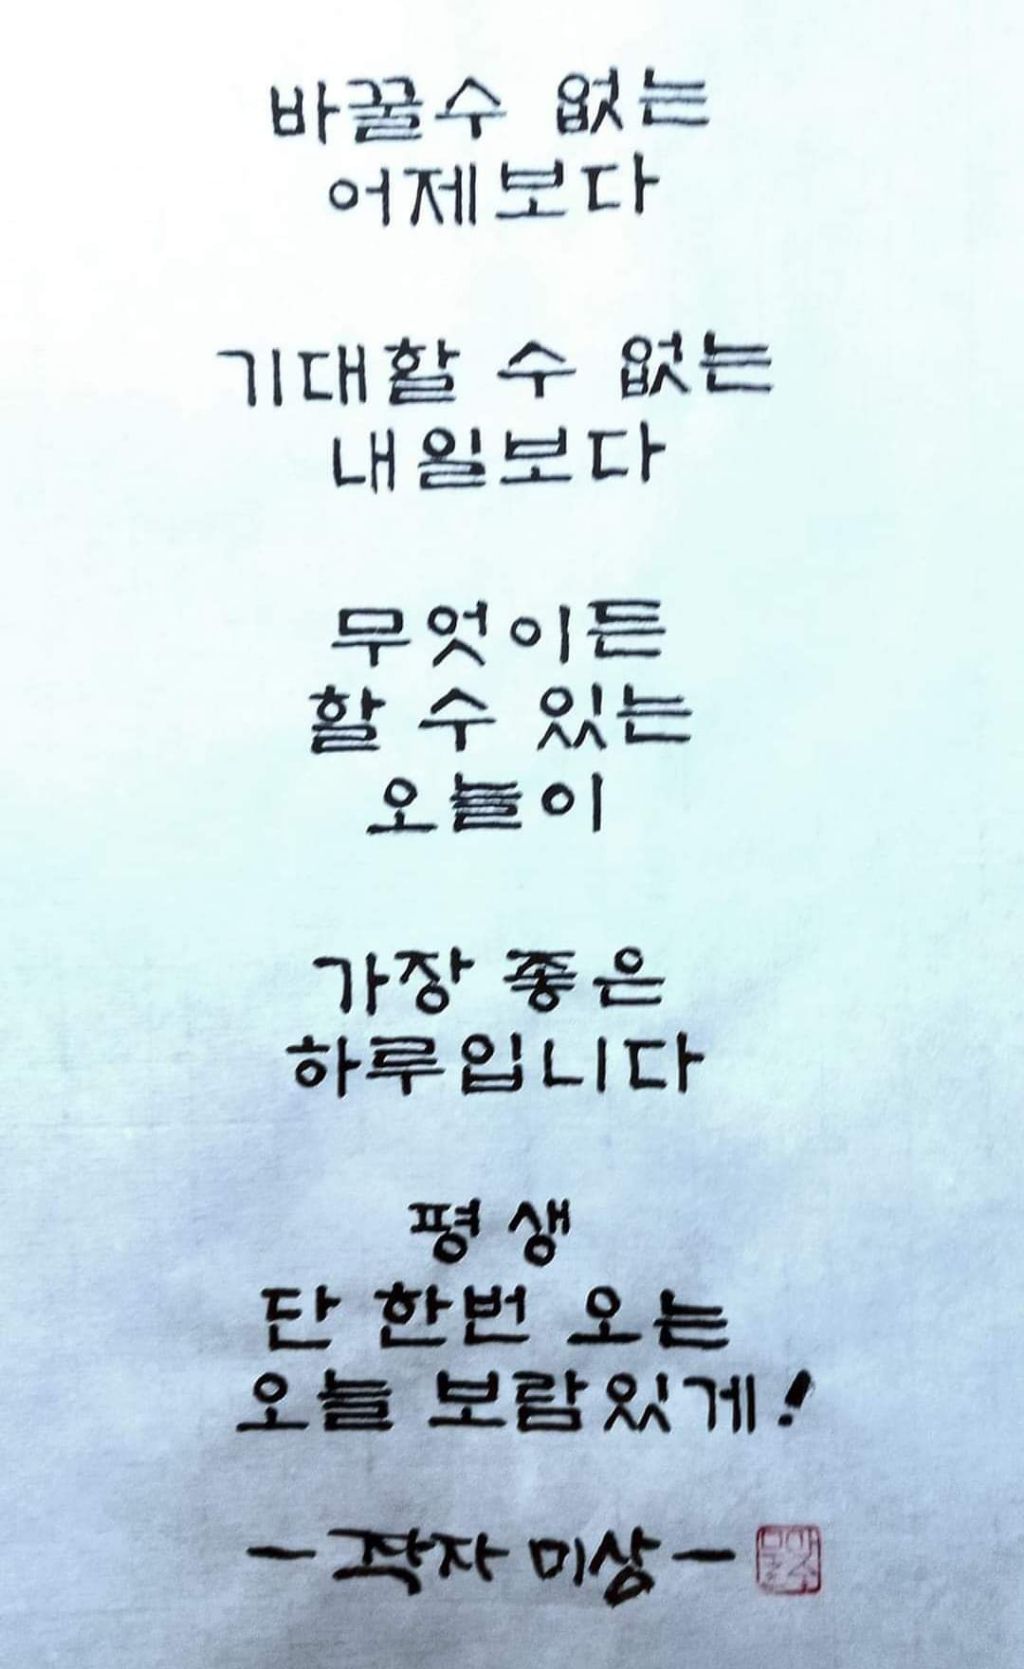 바꿀수 없는
어제보다
기대할 수 없는
내일보다
무엇이든
할 수 있는
오늘이
가장 좋은
하루입니다
평생
단 한번 오는
오늘 보람있게!
- 작자 미상 -